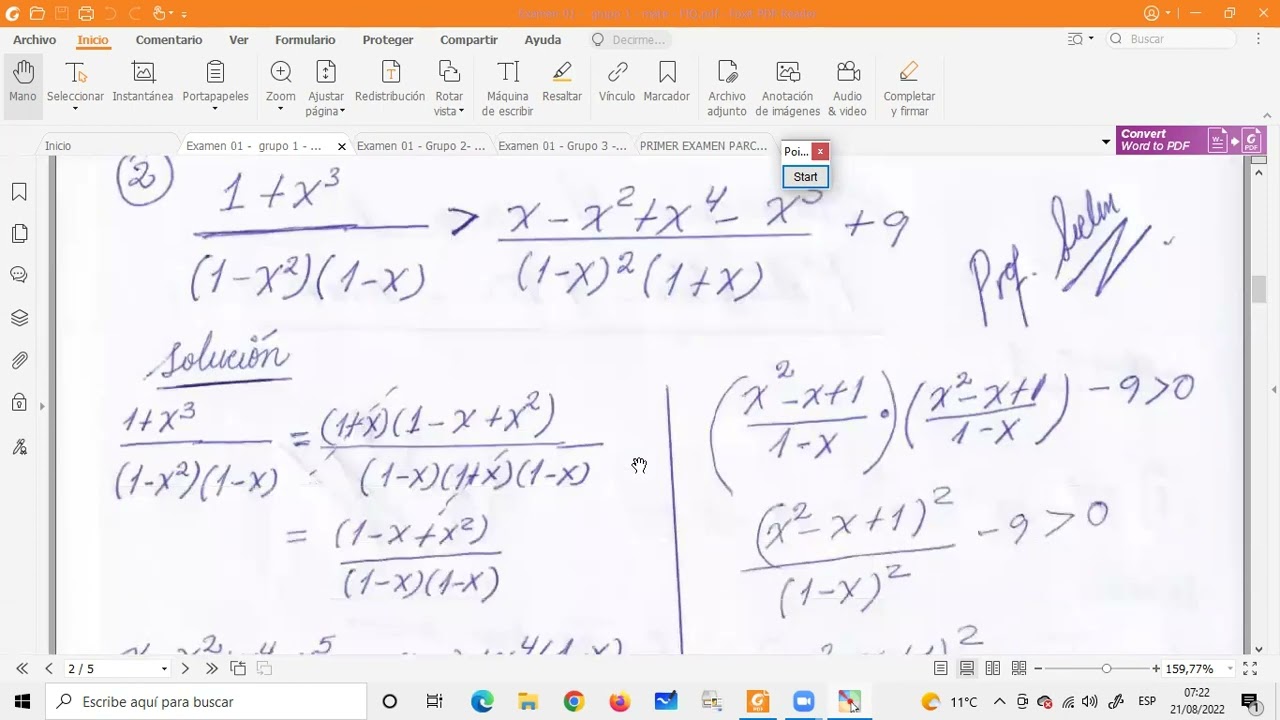 Examen 01 - grupo 1 - PDF Reader
Archivo Inicio Comentario Ver Formulario Proteger Compartir Ayuda Decirme... Buscar
Mano Seleccionar Instantánea Portapapeles Zoom Ajustar página Redistribución Rotar vista Máquina de escribir Resaltar Vínculo Marcador Archivo adjunto Anotación de imágenes Audio & video Completar y firmar
Inicio Examen 01 - grupo 1 - ... Examen 01 - Grupo 2- ... Examen 01 - Grupo 3 -... PRIMER EXAMEN PARC... Convert Word to PDF
Poi...
Start
2
1+x³ / (1-x²)(1-x) > x-x²+x⁴-x⁵ / (1-x)²(1+x) + 9
Prof.
Solución
1+x³ / (1-x²)(1-x) = (1+x)(1-x+x²) / (1-x)(1+x)(1-x)
= (1-x+x²) / (1-x)(1-x)
(x²-x+1 / 1-x)·(x²-x+1 / 1-x) -9>0
(x²-x+1)² / (1-x)² -9>0
2 / 5 159,77%
Escribe aquí para buscar 11°C ESP 07:22
21/08/2022